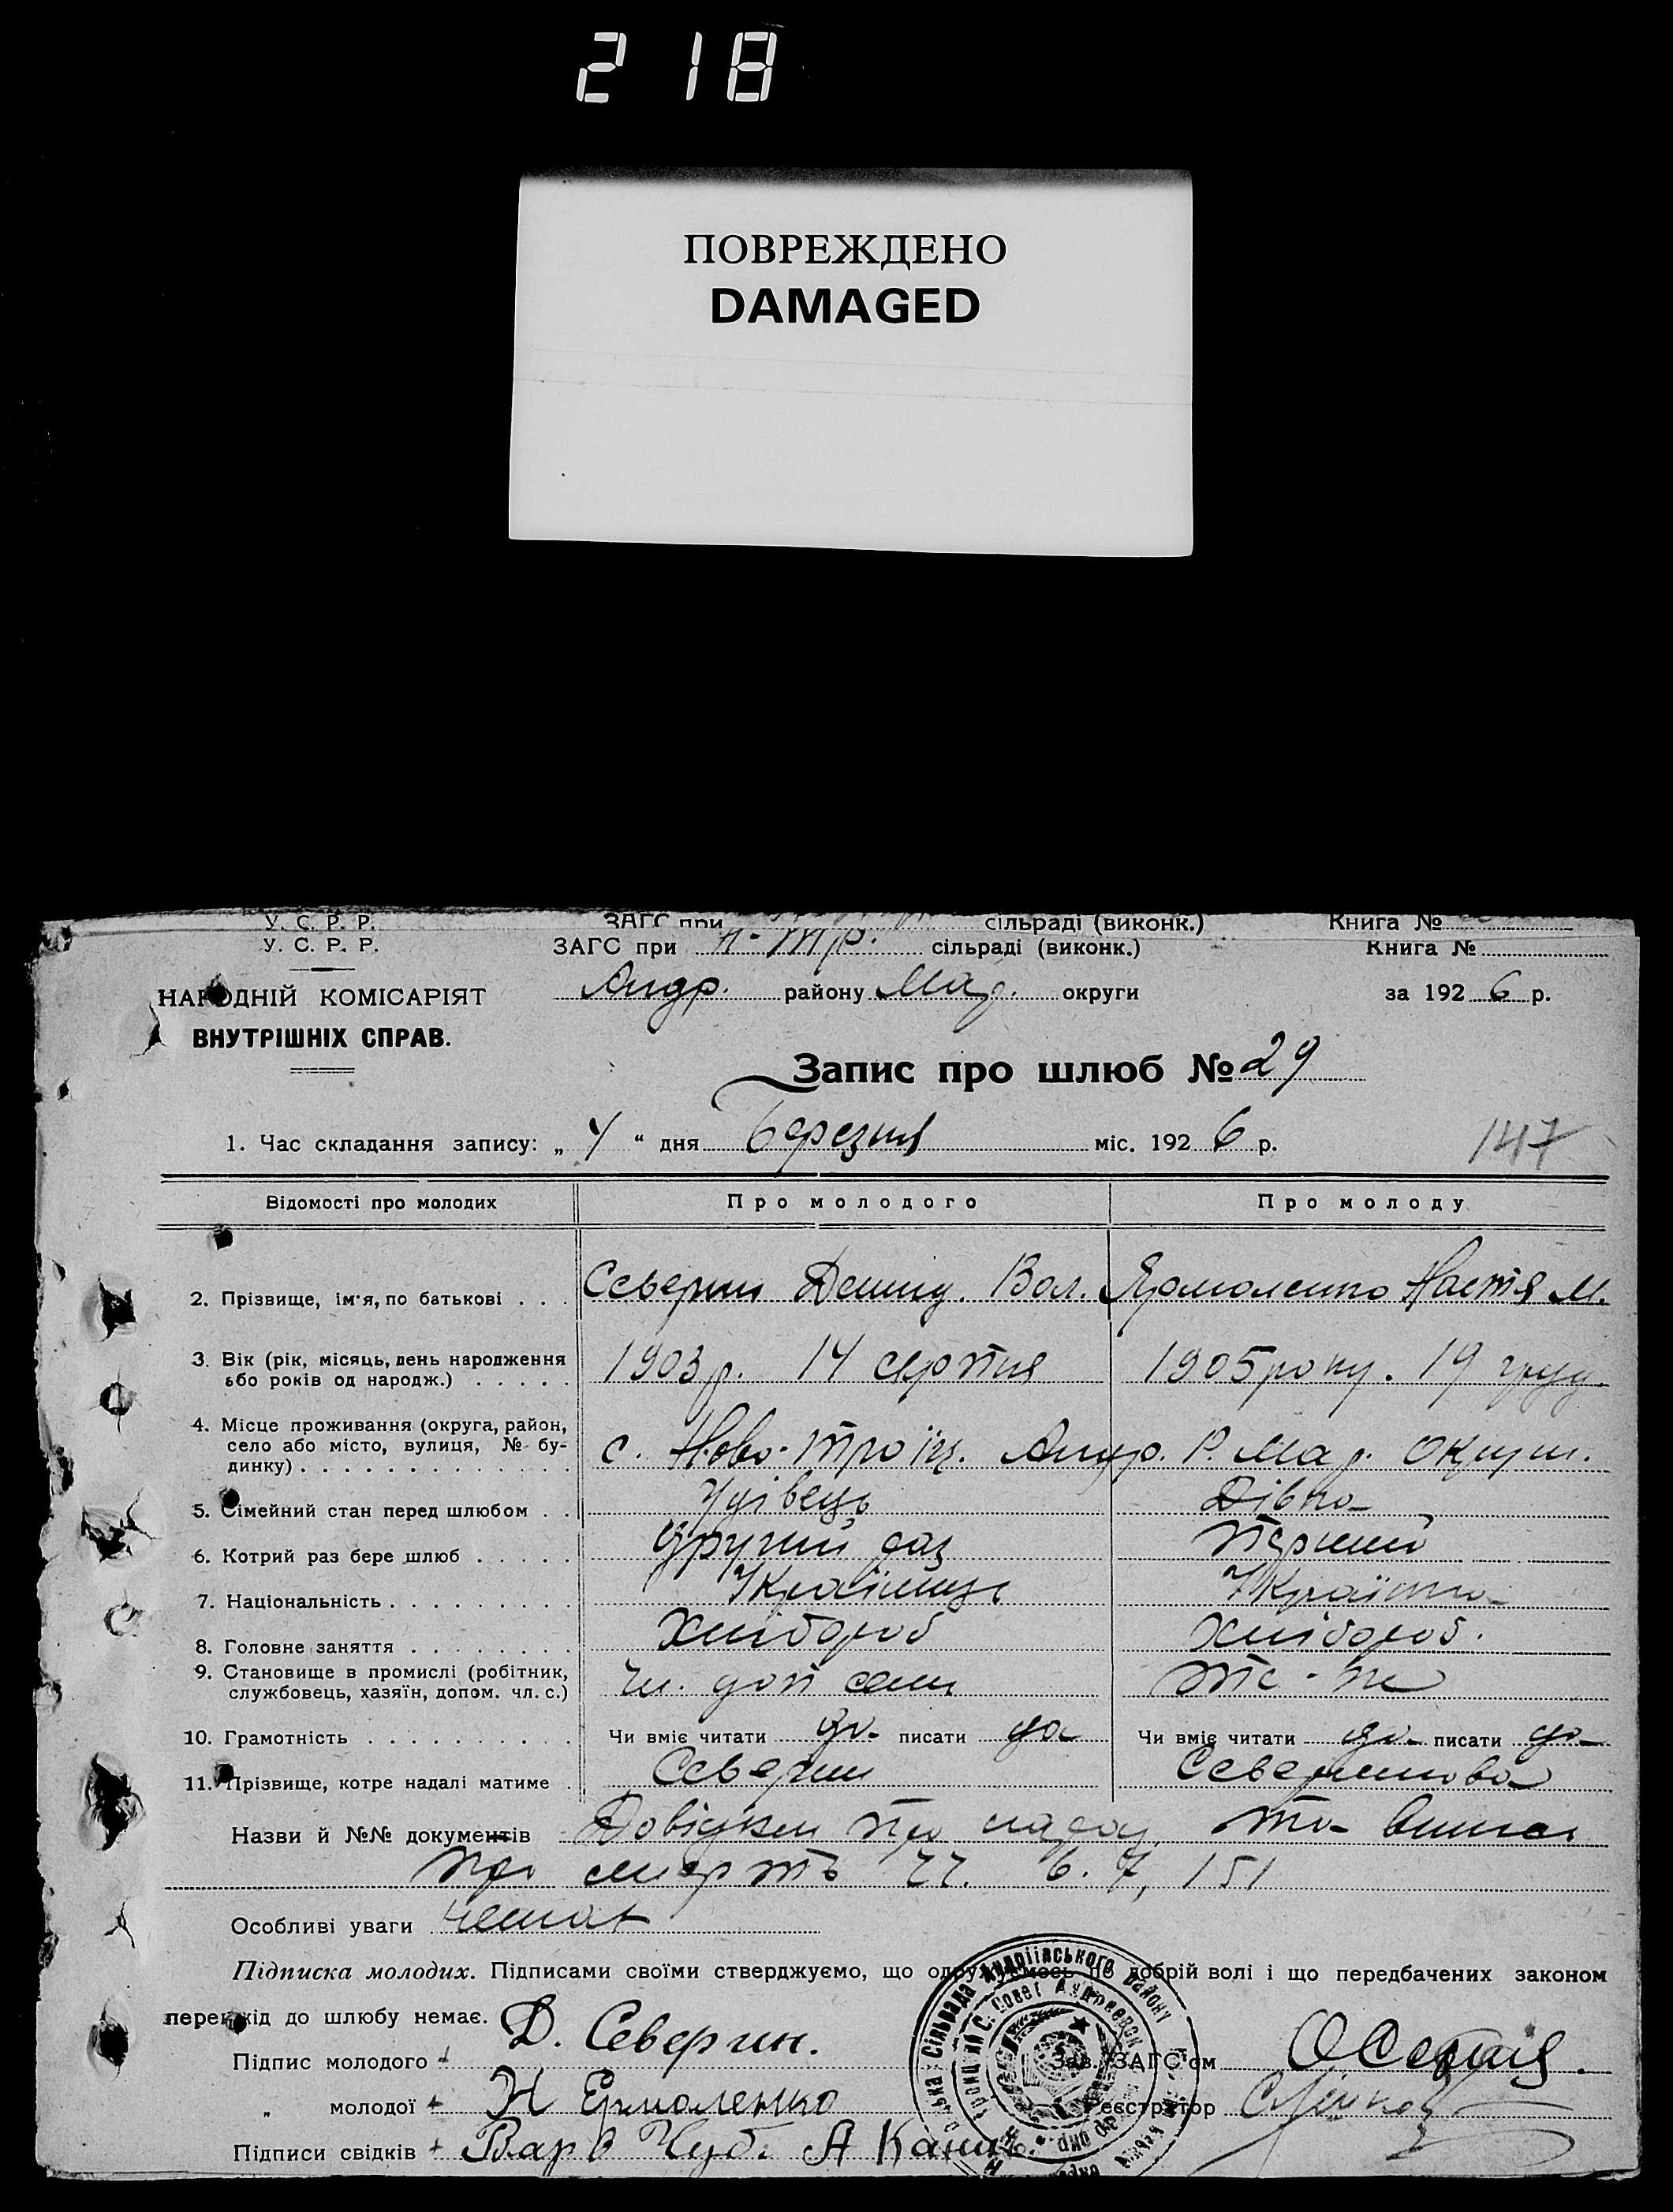 218
ПОВРЕЖДЕНО
DAMAGED
У. С. Р. Р. ЗАГС при сільраді (виконк.) Книга №
У. С. Р. Р. ЗАГС при Н-Тр. сільраді (виконк.) Книга №
НАРОДНІЙ КОМІСАРІЯТ Андр. району Мар. округи за 1926 р.
ВНУТРІШНІХ СПРАВ.
Запис про шлюб № 29
1. Час складання запису: „ 4 “ дня березня міс. 1926 р. 147
Відомості про молодих Про молодого Про молоду
2. Прізвище, ім'я, по батькові . . . Северин Демид. Вол. Ярмоленко Настя М.
3. Вік (рік, місяць, день народження
або років од народж.) . . . . . 1903 р. 14 серпня 1905 року. 19 груд.
4. Місце проживання (округа, район,
село або місто, вулиця, № бу-
динку) . . . . . . . . . . . . . с. Ново-троїц. Андр. Р. Мар. Округи.
5. Сімейний стан перед шлюбом . . Удівець Дівка
6. Котрий раз бере шлюб . . . . . другий раз перший
7. Національність . . . . . . . . . Українець Українка
8. Головне заняття . . . . . . . . Хлібороб Хлібороб.
9. Становище в промислі (робітник,
службовець, хазяїн, допом. чл. с.) чл. доп сем те-же
10. Грамотність . . . . . . . . . . Чи вміє читати да писати да Чи вміє читати да писати да
11. Прізвище, котре надалі матиме . Северин Северинова
Назви й №№ документів Довідки про народ. та випис
про смерть 22. 6. 7, 151
Особливі уваги немає
Підписка молодих. Підписами своїми стверджуємо, що одружуємось по добрій волі і що передбачених законом
перешкід до шлюбу немає.
Підпис молодого Д. Северин. Зав. ЗАГС'ом
„ молодої Н Ермоленко Реєстратор
Підписи свідків Варв Чуб. А
Сільрада Андріївського району